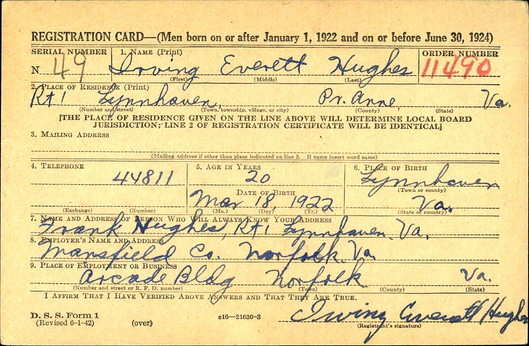 REGISTRATION CARD—(Men born on or after January 1, 1922 and on or before June 30, 1924)
SERIAL NUMBER 1. NAME (Print) ORDER NUMBER
N 49 Irving Everett Hughes 11490
(First) (Middle) (Last)
2. PLACE OF RESIDENCE (Print)
Rt 1 Lynnhaven, Pr. Anne, Va.
(Number and street) (Town, township, village, or city) (County) (State)
[THE PLACE OF RESIDENCE GIVEN ON THE LINE ABOVE WILL DETERMINE LOCAL BOARD
JURISDICTION; LINE 2 OF REGISTRATION CERTIFICATE WILL BE IDENTICAL]
3. MAILING ADDRESS
(Mailing address if other than place indicated on line 2. If same insert word same)
4. TELEPHONE 5. AGE IN YEARS 6. PLACE OF BIRTH
44811 20 Lynnhaven
DATE OF BIRTH (Town or county)
Mar 18, 1922 Va.
(Exchange) (Number) (Mo.) (Day) (Yr.) (State or country)
7. NAME AND ADDRESS OF PERSON WHO WILL ALWAYS KNOW YOUR ADDRESS
Frank Hughes, Rt 1 Lynnhaven, Va.
8. EMPLOYER'S NAME AND ADDRESS
Mansfield Co. Norfolk, Va.
9. PLACE OF EMPLOYMENT OR BUSINESS
Arcade Bldg Norfolk Va.
(Number and street or R. F. D. number) (Town) (County) (State)
I AFFIRM THAT I HAVE VERIFIED ABOVE ANSWERS AND THAT THEY ARE TRUE.
D. S. S. Form 1
(Revised 6-1-42) (over) c16—21630-3 Irving Everett Hughes
(Registrant's signature)